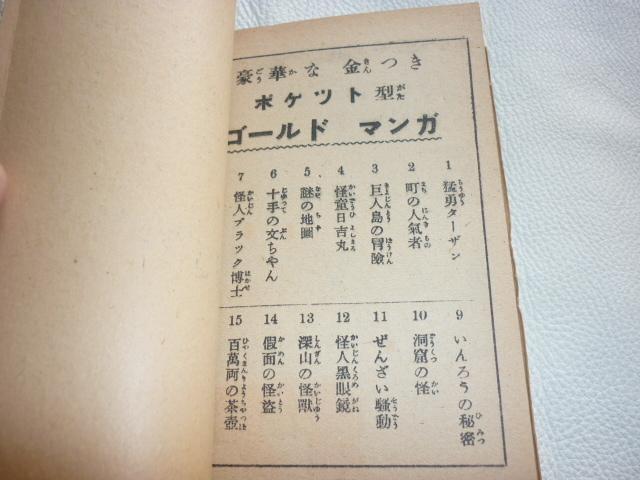 豪華な 金つき
ポケツト型
ゴールド マンガ
1 猛勇ターザン
2 町の人氣者
3 巨人島の冒險
4 怪童日吉丸
5 謎の地圖
6 十手の文ちやん
7 怪人ブラック博士
9 いんろうの秘密
10 洞窟の怪
11 ぜんざい騒動
12 怪人黒眼鏡
13 深山の怪獣
14 假面の怪盗
15 百萬両の茶壺